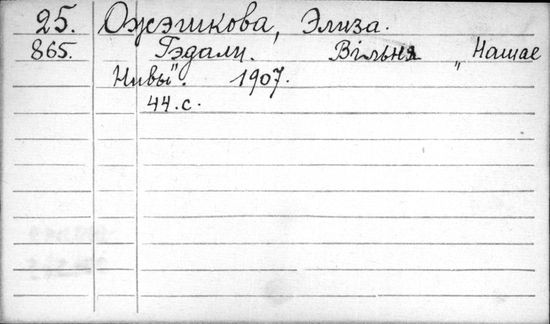 25. Ожэшкова, Элиза.
865. Гэдали. Вільня „Нашае
Нивы". 1907.
44.с.